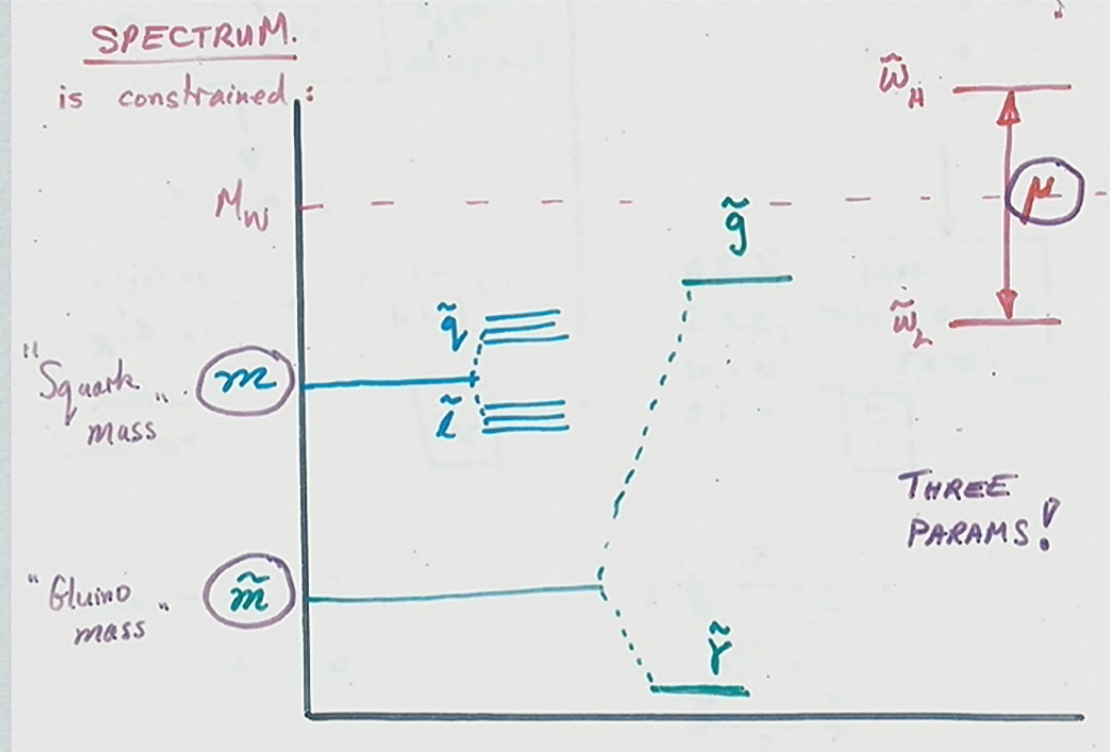 SPECTRUM.
is constrained:
w̃_H
M_W
μ
g̃
w̃_L
q̃
"Squark
mass"
m
l̃
THREE
PARAMS!
"Gluino
mass"
m̃
γ̃